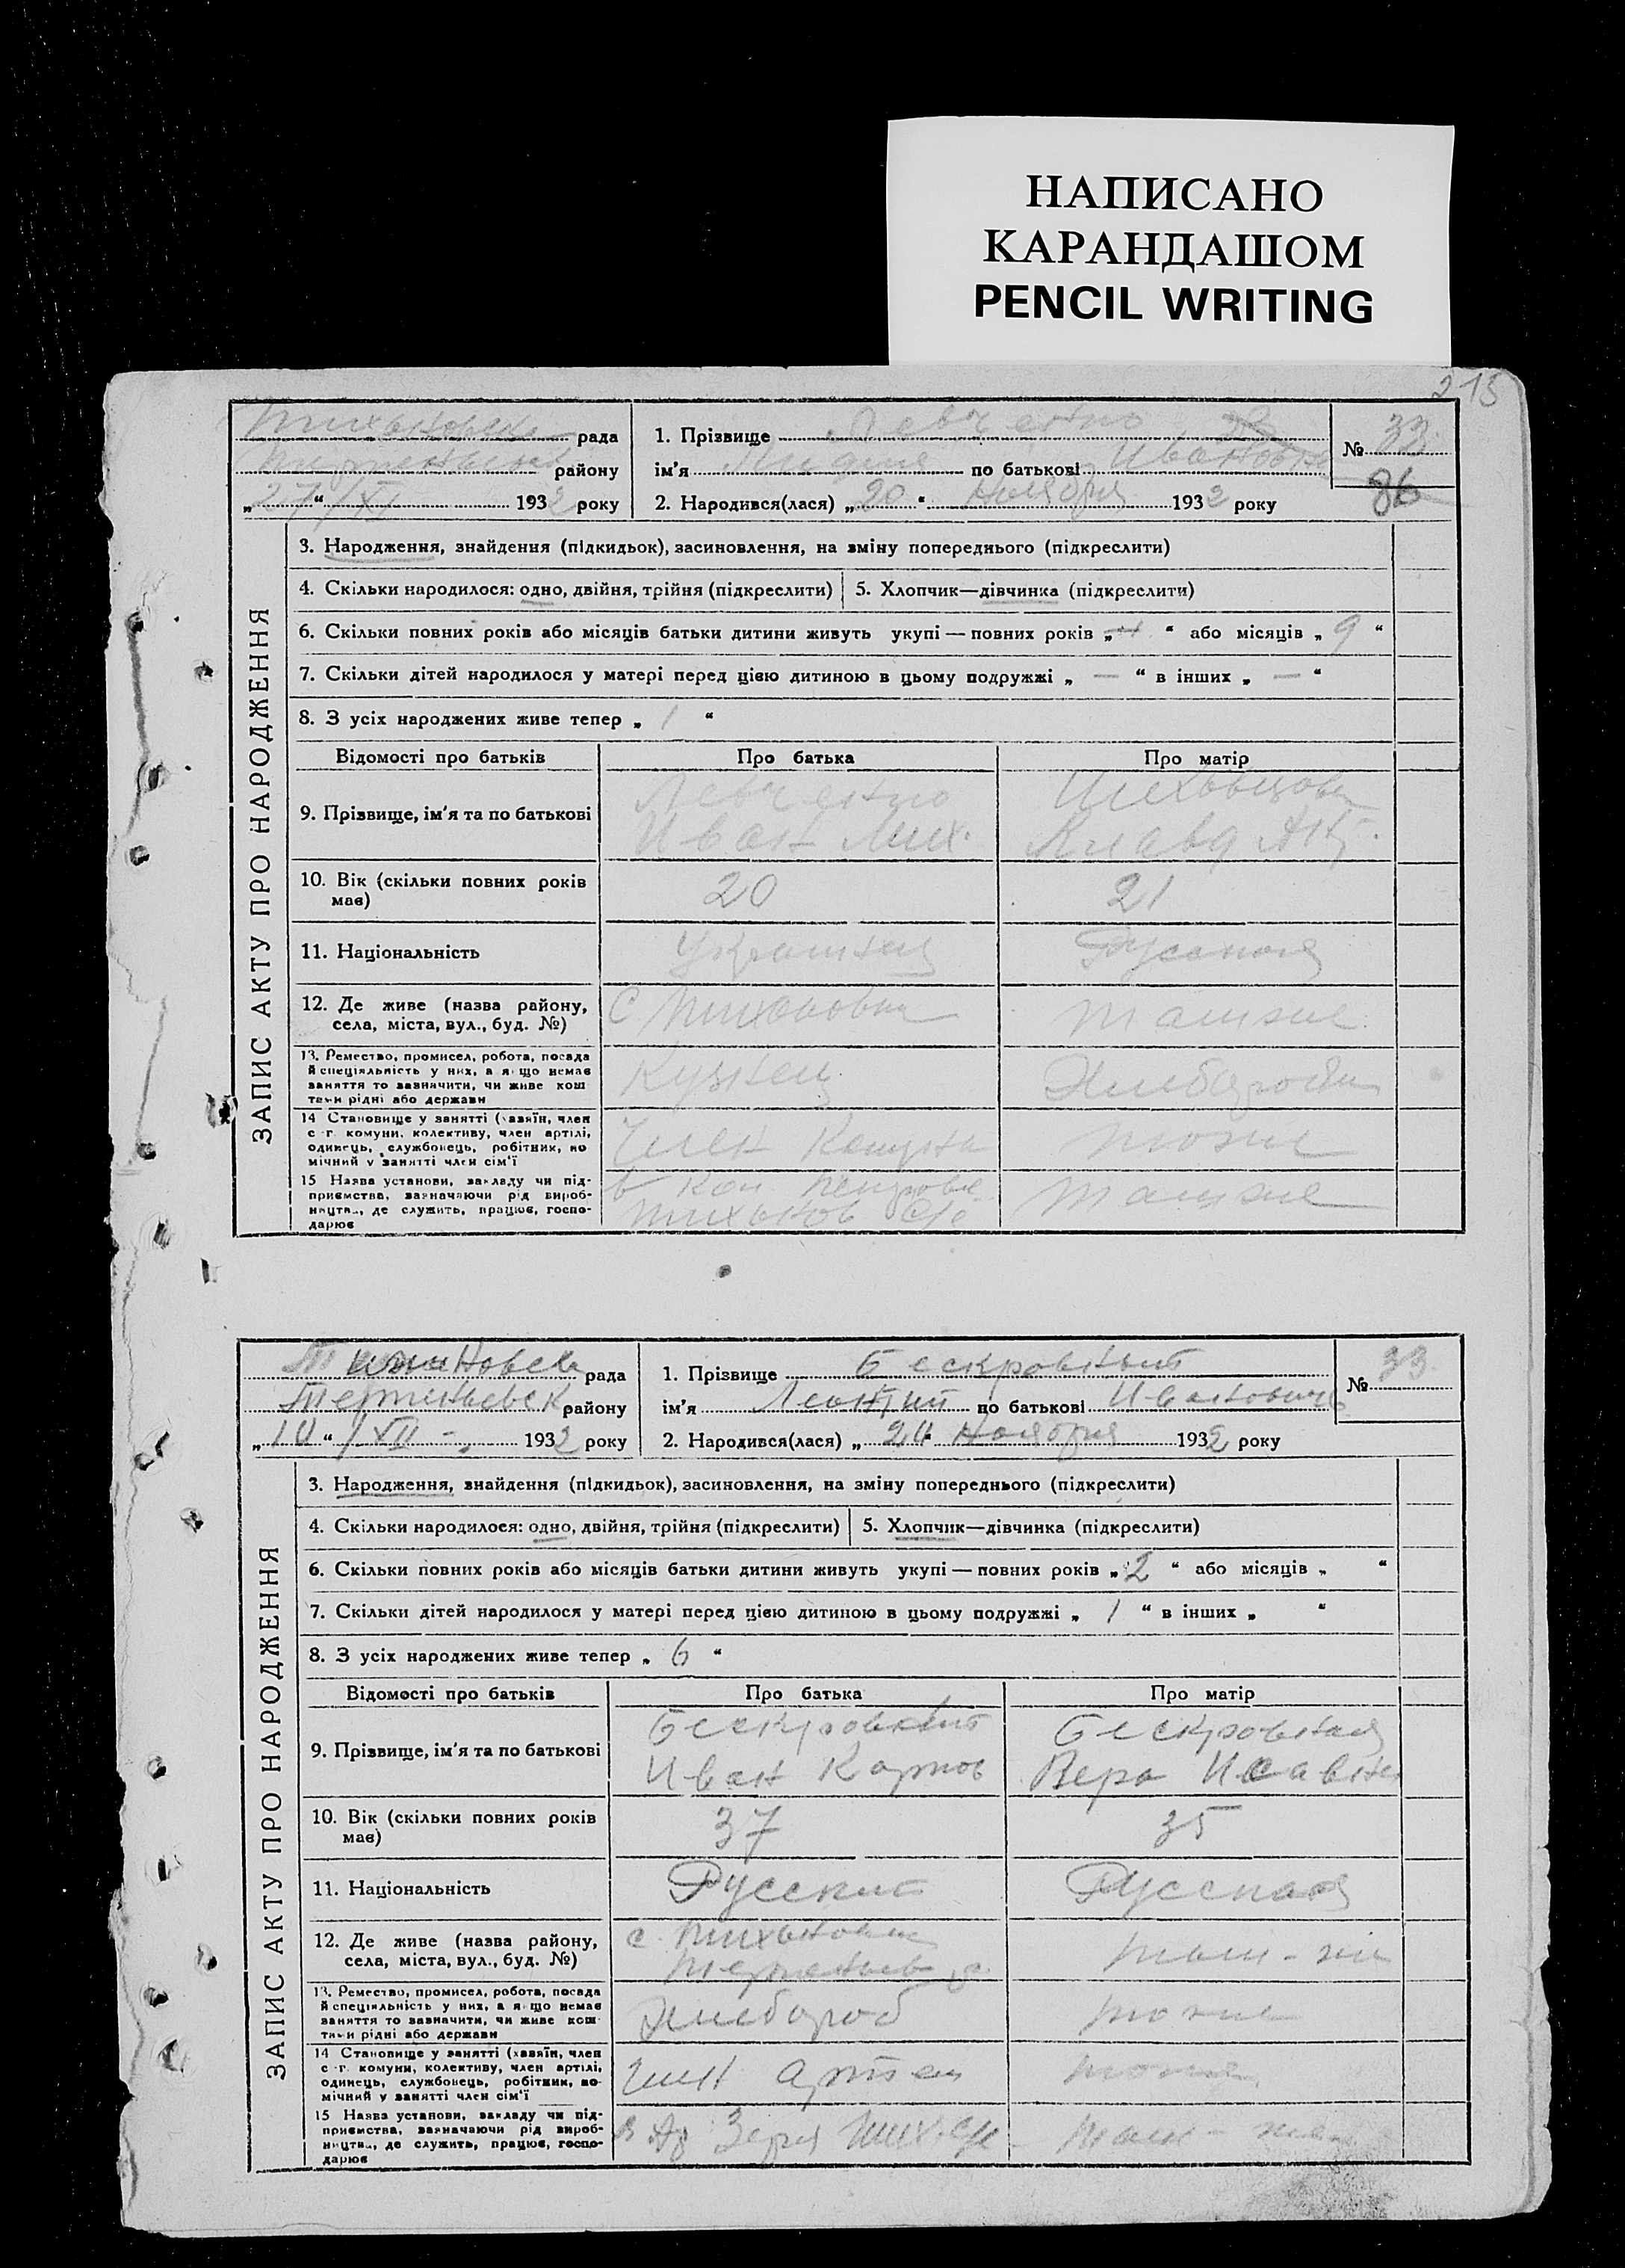 НАПИСАНО
КАРАНДАШОМ
PENCIL WRITING
213
рада
району
„27“ /XI 1932 року
1. Прізвище Левченко
ім'я Лидия по батькові Ивановна
2. Народився(лася) „20“ Ноября 1932 року
№ 33
86
ЗАПИС АКТУ ПРО НАРОДЖЕННЯ
3. Народження, знайдення (підкидьок), засиновлення, на зміну попереднього (підкреслити)
4. Скільки народилося: одно, двійня, трійня (підкреслити) 5. Хлопчик—дівчинка (підкреслити)
6. Скільки повних років або місяців батьки дитини живуть укупі — повних років „ “ або місяців „ 9 “
7. Скільки дітей народилося у матері перед цією дитиною в цьому подружжі „ — “ в інших „ — “
8. З усіх народжених живе тепер „ 1 “
Відомості про батьків Про батька Про матір
9. Прізвище, ім'я та по батькові
Левченко
Иван Мих.
Клавд
10. Вік (скільки повних років має) 20 21
11. Національність Украинец Русская
12. Де живе (назва району, села, міста, вул., буд. №)
С Тихоновка
там же
13. Ремество, промисел, робота, посада й спеціяльність у них, а якщо немає заняття то зазначити, чи живе коштами рідні або держави
Кузнец
Хлебороб
14 Становище у занятті (хазяїн, член с.-г. комуни, колективу, член артілі, одинець, службовець, робітник, помічний у занятті член сім'ї
Член Комуны
тоже
15 Назва установи, закладу чи підприємства, зазначаючи рід виробництва, де служить, працює, господарює
в Ком
там же
рада
району
„10“ /XII 1932 року
1. Прізвище Бескровный
ім'я Леонтий по батькові Иванович
2. Народився(лася) „ 24 Ноября 1932 року
№ 33
ЗАПИС АКТУ ПРО НАРОДЖЕННЯ
3. Народження, знайдення (підкидьок), засиновлення, на зміну попереднього (підкреслити)
4. Скільки народилося: одно, двійня, трійня (підкреслити) 5. Хлопчик—дівчинка (підкреслити)
6. Скільки повних років або місяців батьки дитини живуть укупі — повних років „ 2 “ або місяців „ “
7. Скільки дітей народилося у матері перед цією дитиною в цьому подружжі „ 1 “ в інших „ “
8. З усіх народжених живе тепер „ 6 “
Відомості про батьків Про батька Про матір
9. Прізвище, ім'я та по батькові
Бескровный
Иван Карпов
Бескровная
Вера Исавна
10. Вік (скільки повних років має) 37 35
11. Національність Русский Русская
12. Де живе (назва району, села, міста, вул., буд. №)
с. Тихоновка
там-же
13. Ремество, промисел, робота, посада й спеціяльність у них, а якщо немає заняття то зазначити, чи живе коштами рідні або держави
Хлебороб
тоже
14 Становище у занятті (хазяїн, член с.-г. комуни, колективу, член артілі, одинець, службовець, робітник, помічний у занятті член сім'ї
член артели
тоже
15 Назва установи, закладу чи підприємства, зазначаючи рід виробництва, де служить, працює, господарює
Заря
там-же